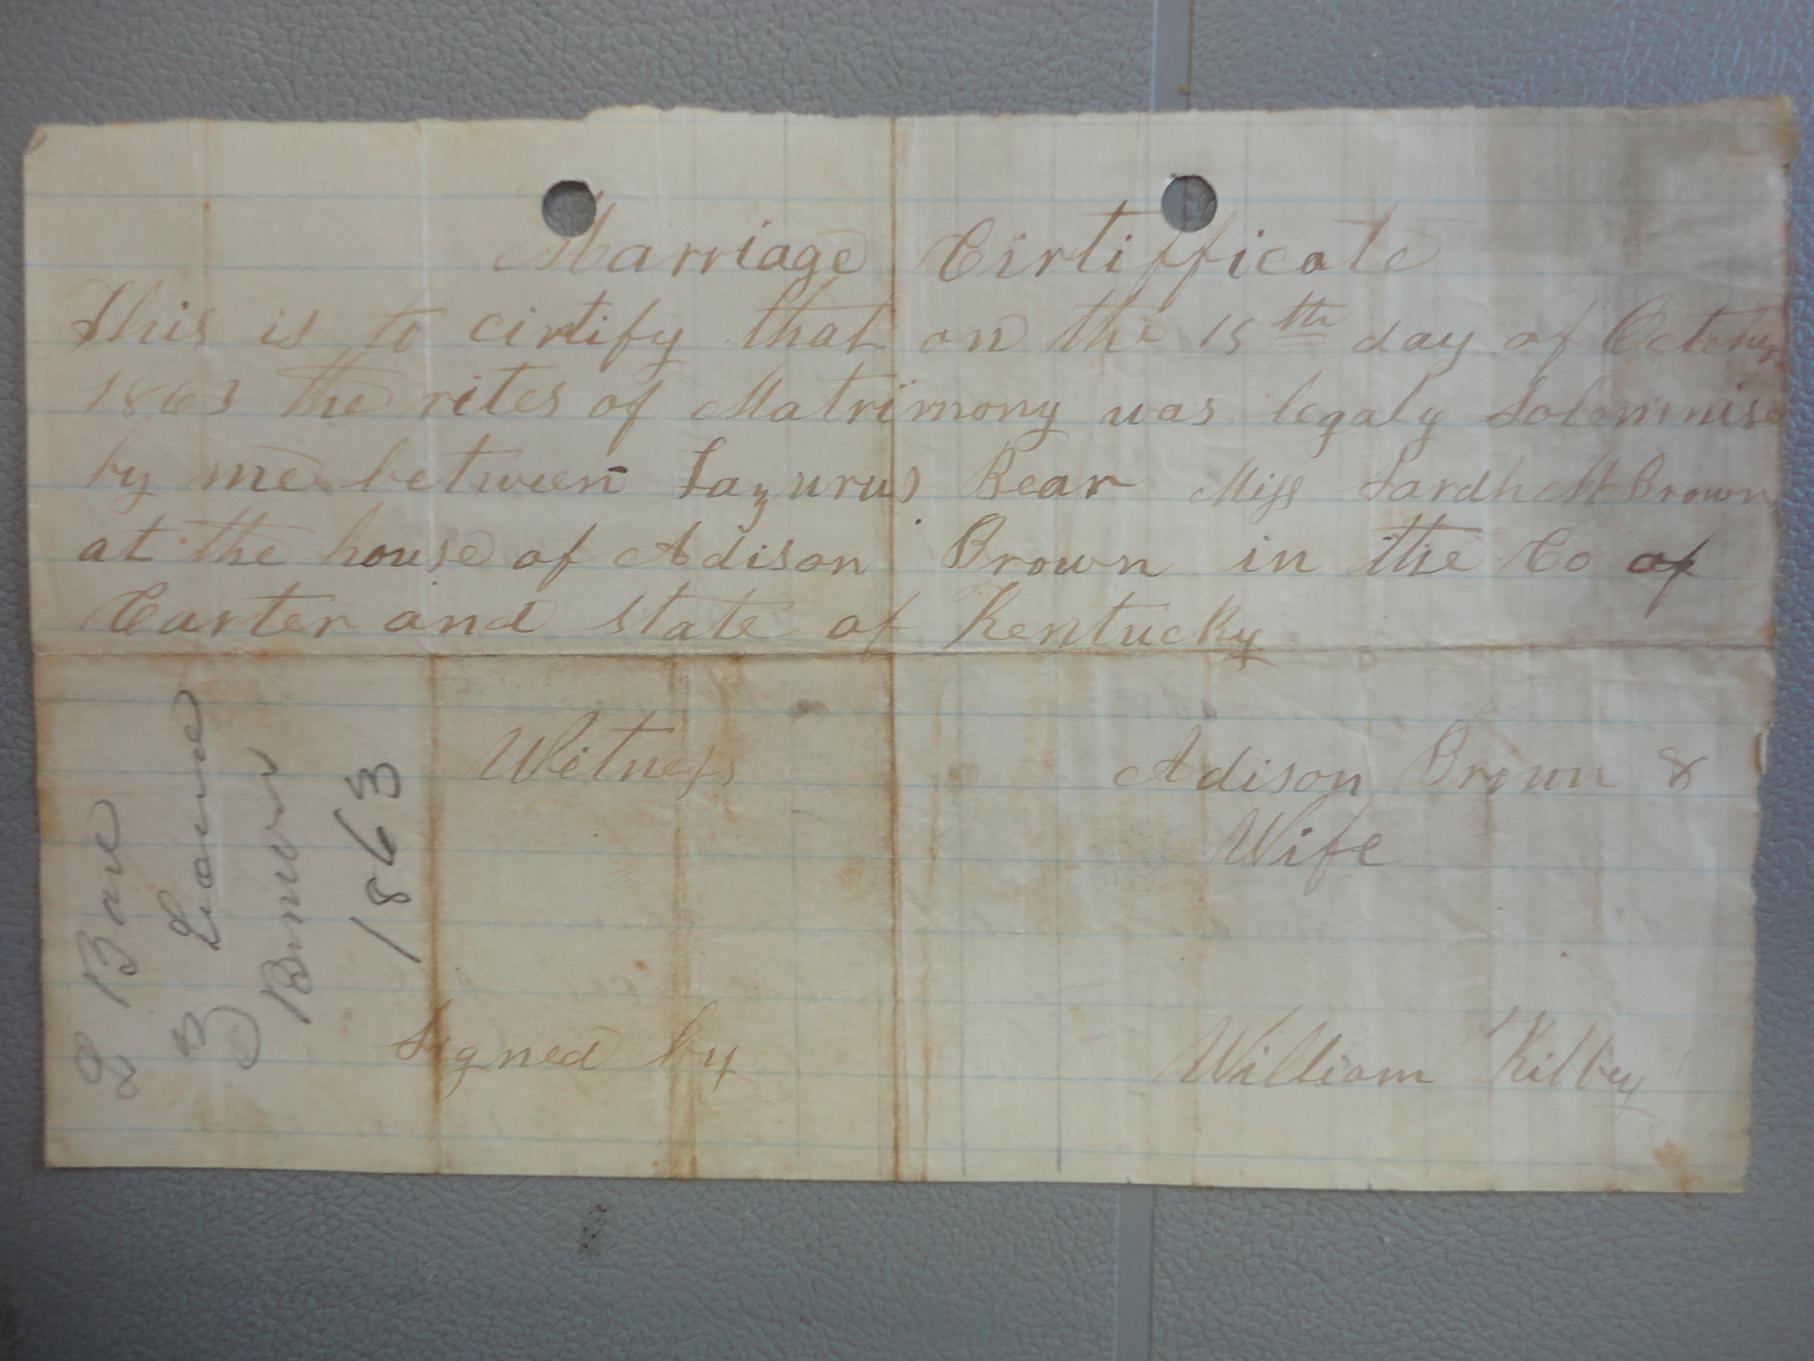 Marriage Cirtifficate
This is to cirtify that on the 15th day of October
1863 the rites of Matrimony was legaly Solemnise
by me between Lazurus Bear Miss Sardh M Brown
at the house of Adison Brown in the Co of
Carter and state of Kentucky
Witness Adison Brown &
Wife
Signed by William Kilbey
L Bare
1863